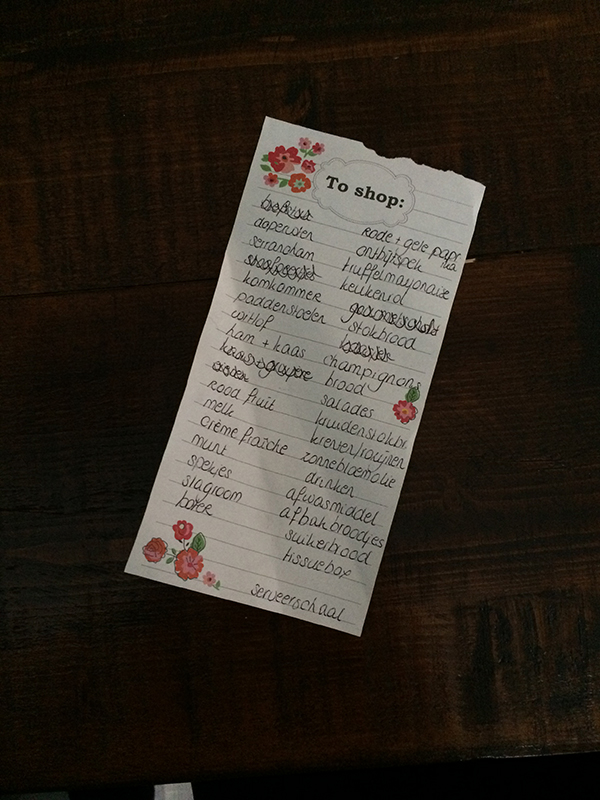 To shop:
doperwten
serranoham
komkommer
paddenstoelen
witlof
ham + kaas
rood fruit
melk
crème fraîche
munt
spekjes
slagroom
boter
rode + gele papr
ika
ontbijtspek
truffelmayonaise
keukenrol
stokbrood
champignons
brood
salades
kruidenstokbr
krenten/rozijnen
zonnebloemolie
drinken
afwasmiddel
afbakbroodjes
suikerbrood
tissuebox
serveerschaal